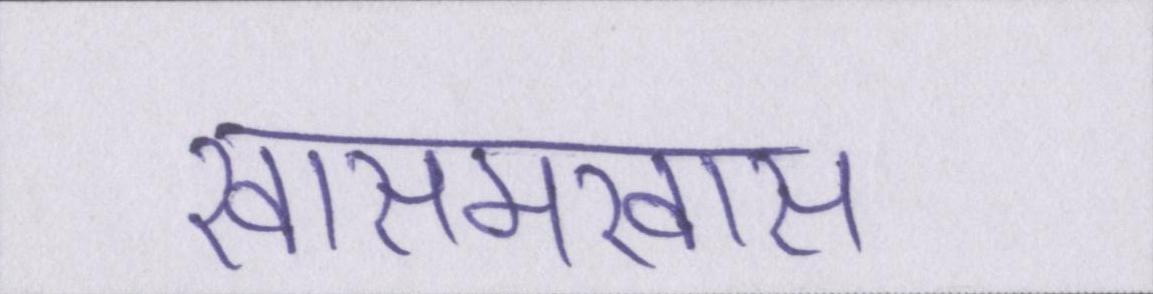 खासमखास